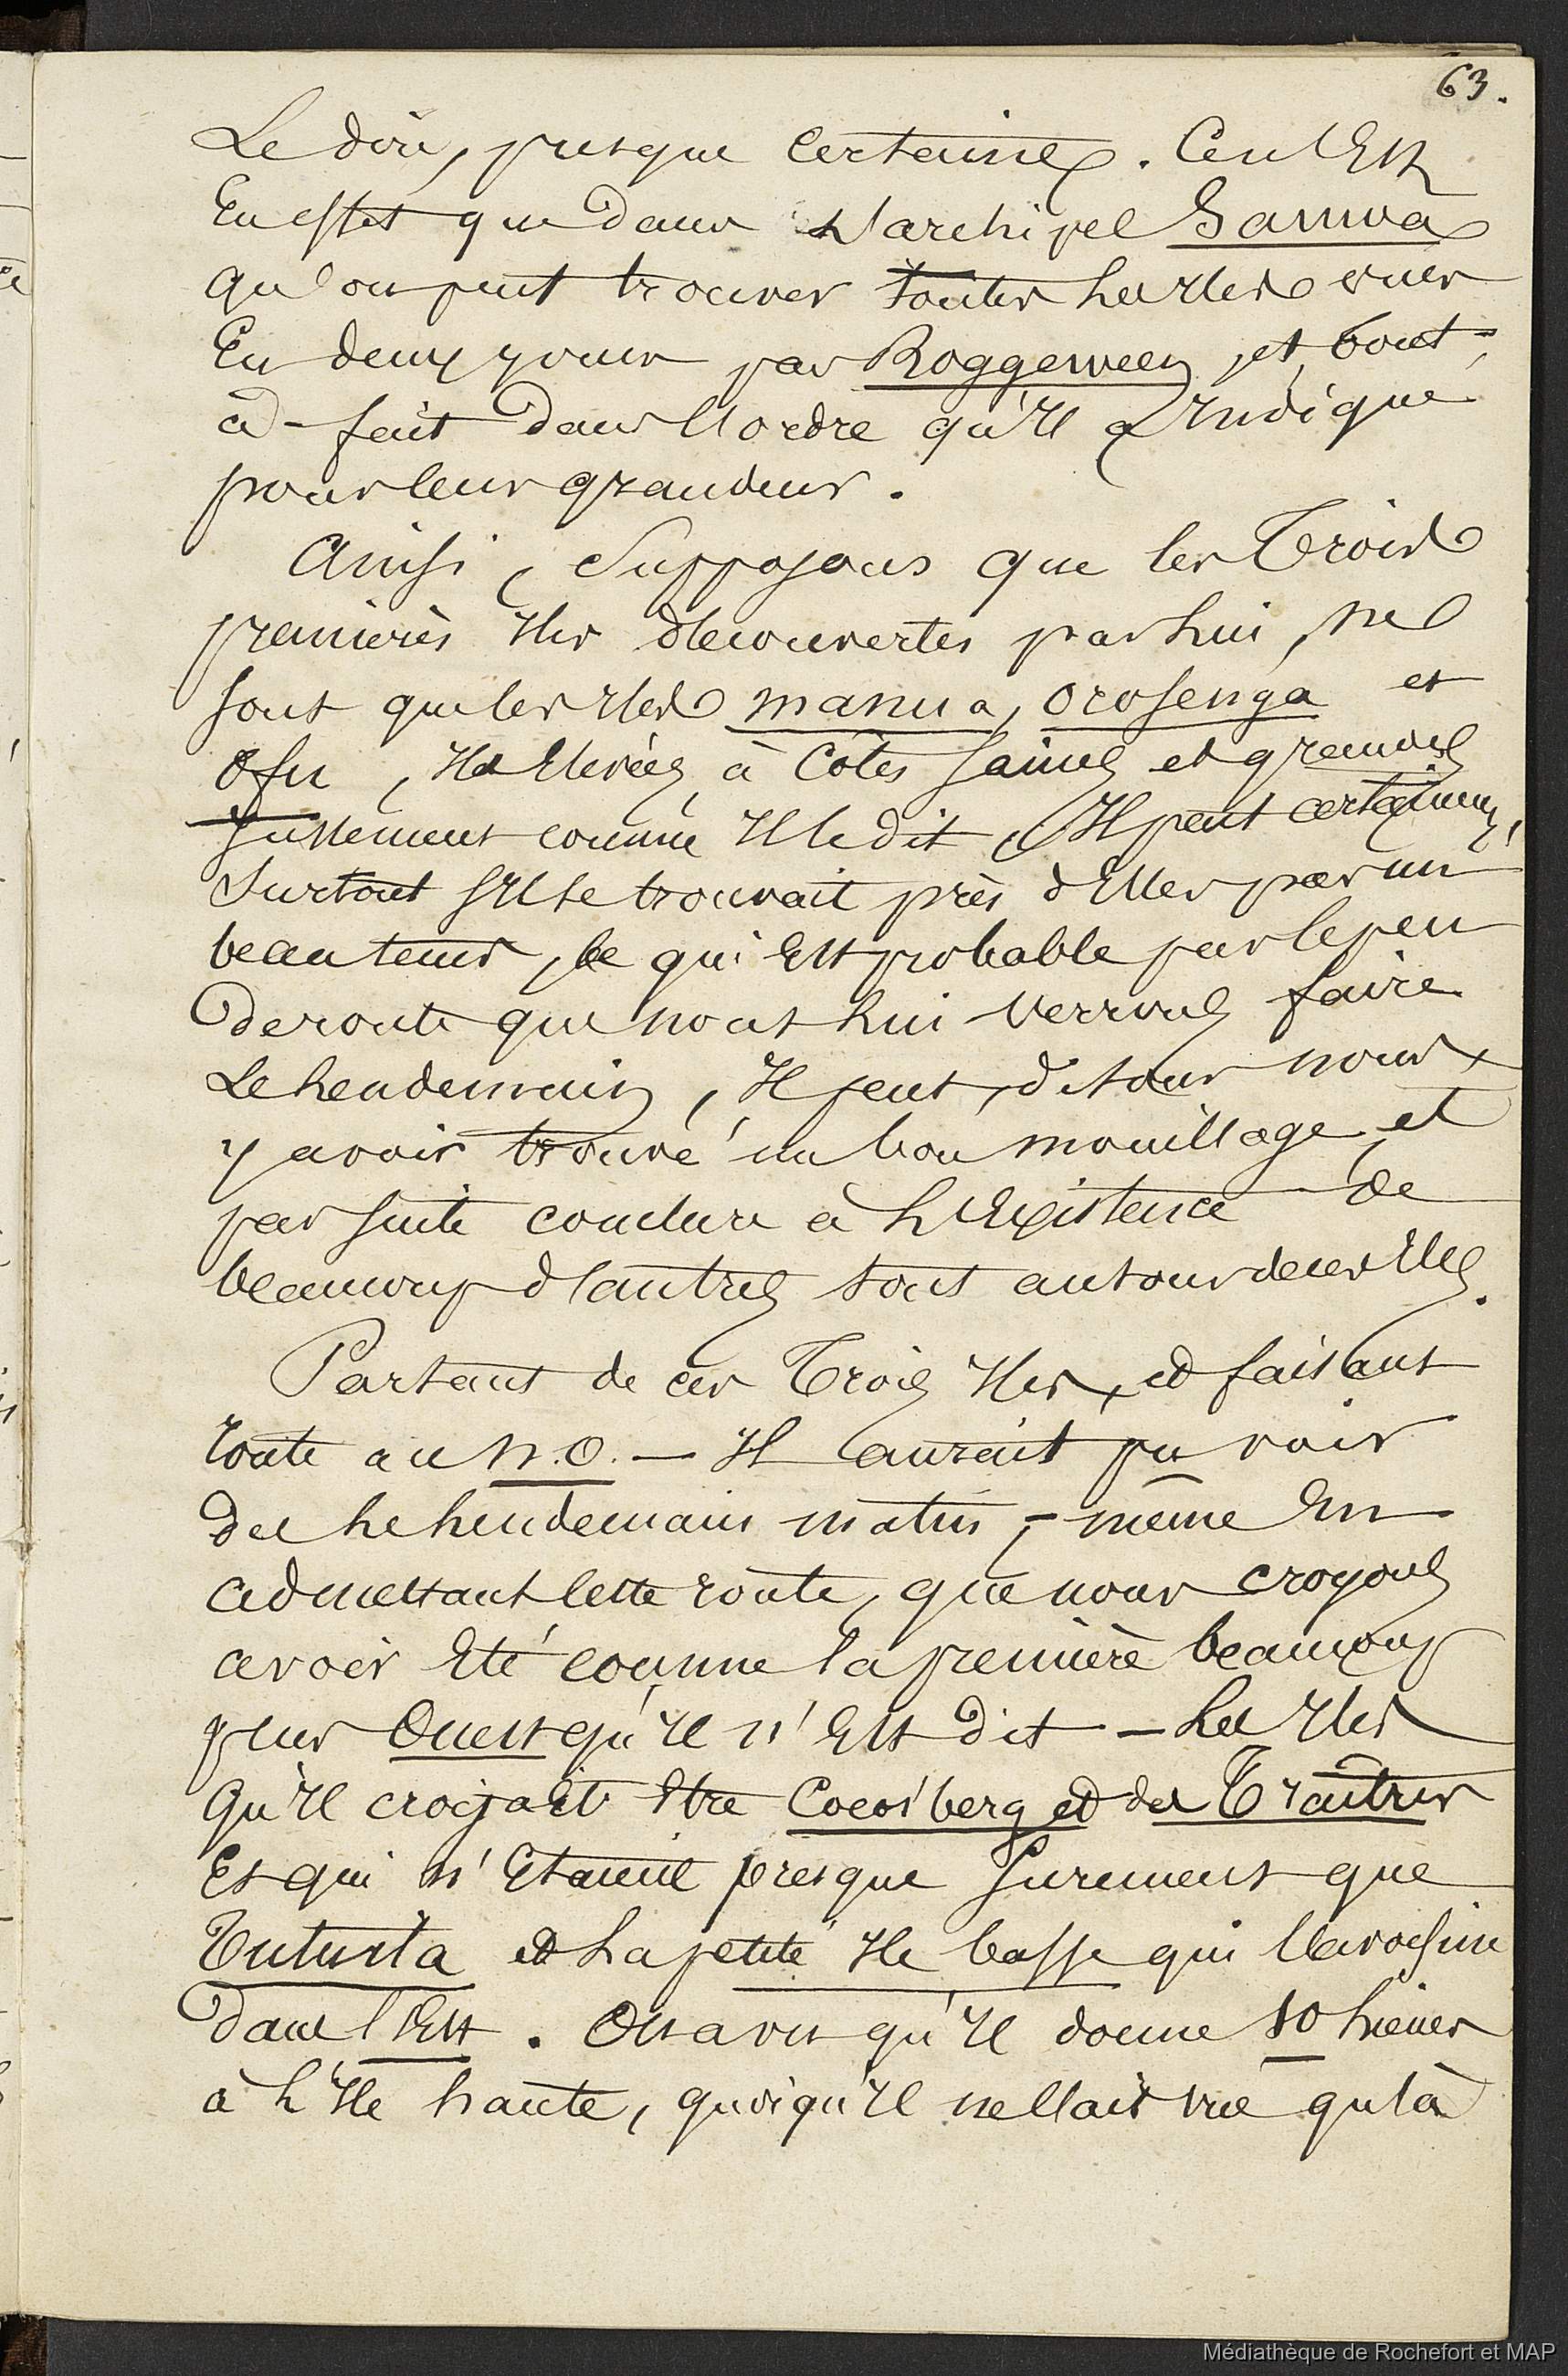 63.
Le dire, presque certaines. Ce n'Est
En effet que dans l'archipel Samoa
qu'on peut trouver toutes les Iles vues
En deux jours par Roggeween, et, tout-
à-fait dans l'ordre qu'Il a Indiqué
pour leur grandeur.
Ainsi, Supposons que les Trois
premières Iles découvertes par lui, ne
sont que les Iles Manua, Orosenga et
Ofu, Iles Elevées, à Côtes saines et grandes
Justement comme Il le dit, Il peut certainemt,
Surtout s'Il se trouvait près d'Elles par un
beau tems, ce qui Est probable par le peu
de route que nous lui verrons faire
Le lendemain, Il peut, disons nous,
y avoir trouvé un bon mouillage, et
par suite conclure à l'Existence de
beaucoup d'autres tout autour de ces Iles.
Partant de ces Trois Iles, et faisant
route au N.O. — Il aurait pu voir
dès le lendemain matin, - même En
admettant cette route, que nous croyons
avoir Eté comme la première beaucoup
plus Ouest qu'Il n'Est dit — Les Iles
Qu'Il croyait être Cocos'berg et des Traitres
Et qui n'Etaient presque surement que
Tutuila et La petite Ile basse qui l'avoisine
dans l'Est. On a vu qu'Il donne 10 lieues
à l'Ile haute, quoiqu'Il ne l'ait vue qu'à
Médiathèque de Rochefort et MAP